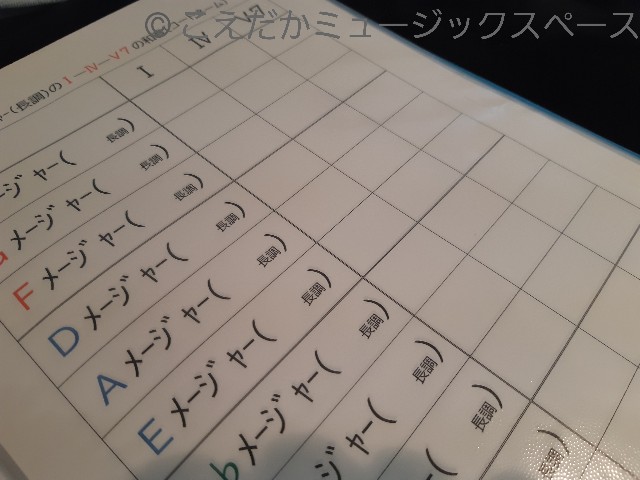 © こえだかミュージックスペース
ー(長調)の Ⅰ－Ⅳ－Ⅴ7 の和
Ⅰ Ⅳ Ⅴ7
ージャー( 長調)
メージャー( 長調)
F メージャー( 長調)
D メージャー( 長調)
A メージャー( 長調)
E メージャー( 長調)
b メージャー( 長調)
ジャー( 長調)
( 長調)
長調)